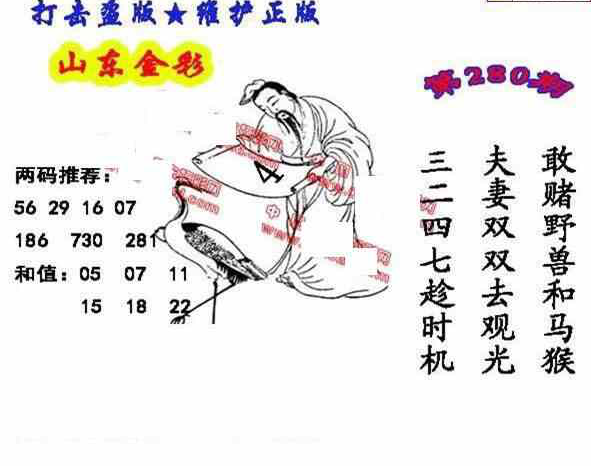 打击盗版★维护正版
山东金彩
第280期
两码推荐：
56 29 16 07
186 730 281
和值：05 07 11
15 18 22
4
敢赌野兽和马猴
夫妻双双去观光
三二四七趁时机